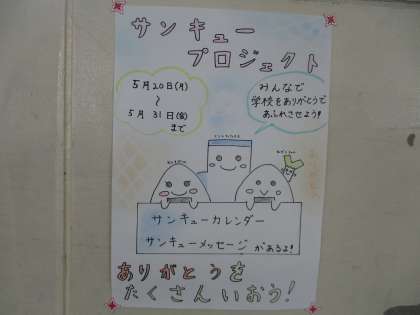 サンキュー
プロジェクト
5月20日(月)
～
5月31日(金)
まで
みんなで
学校をありがとうで
あふれさせよう!
サンキューカレンダー
サンキューメッセージがあるよ!
ありがとうを
たくさんいおう!